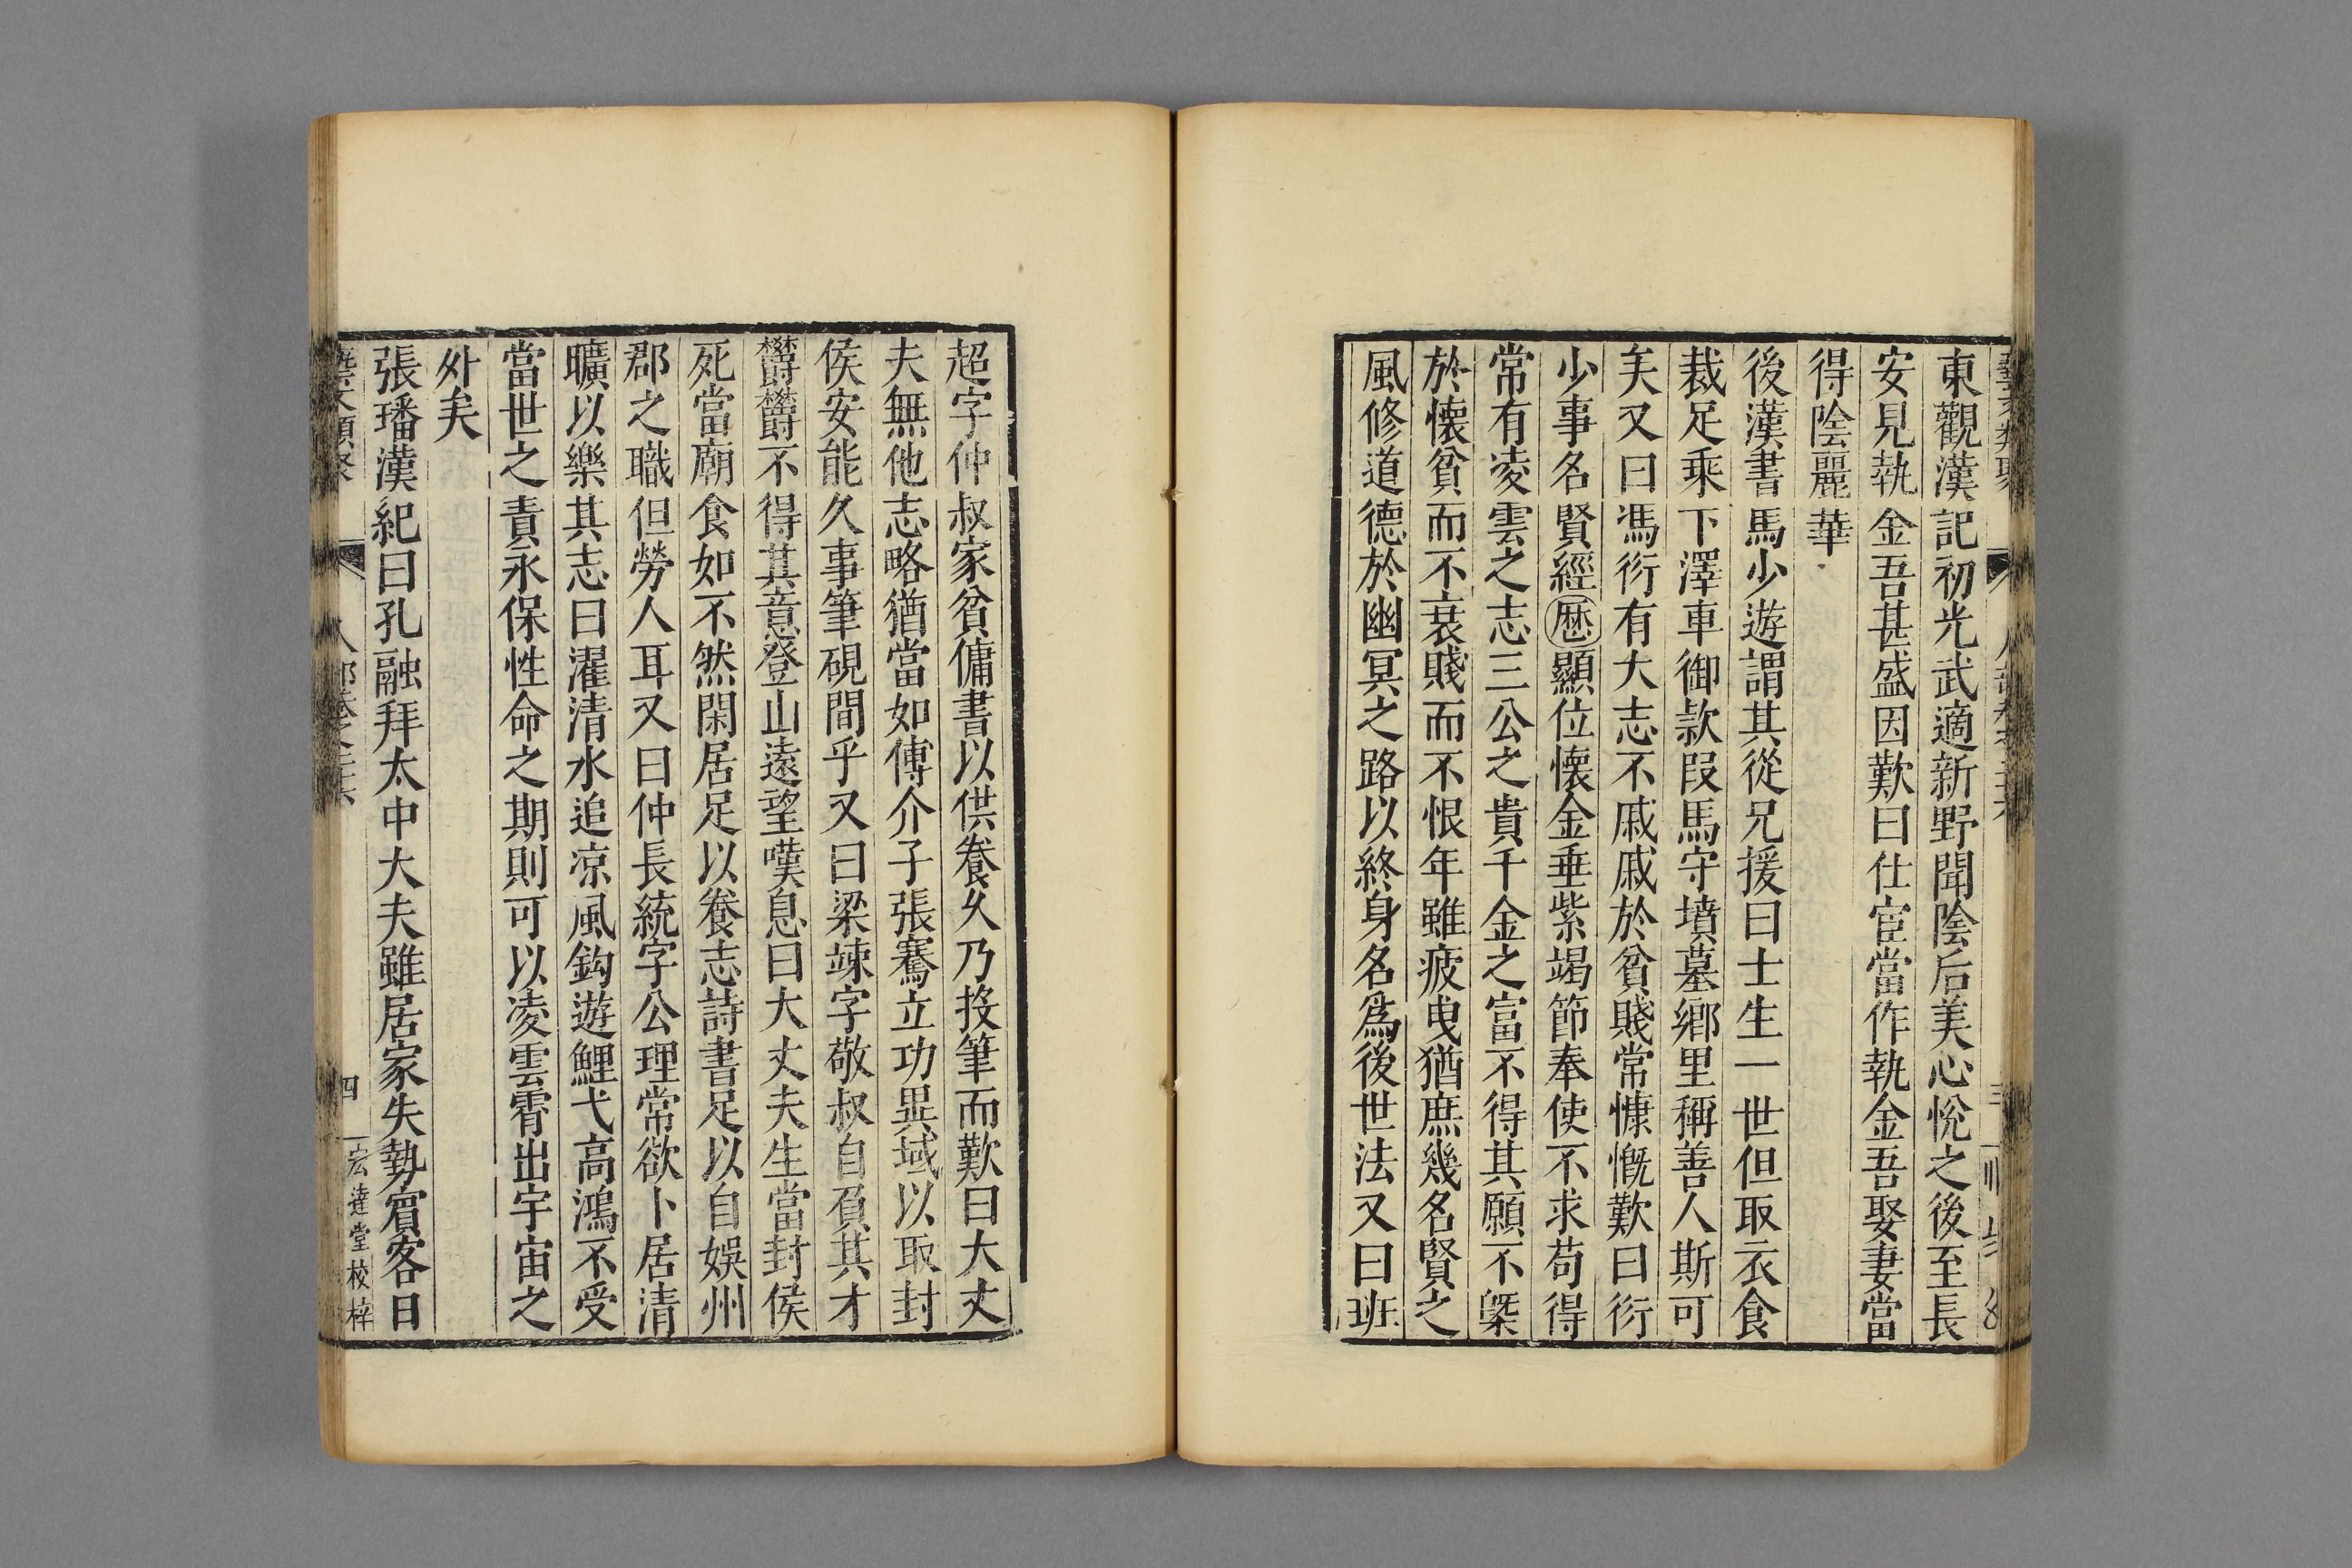 東觀漢記初光武適新野聞陰后美心悅之後至長
安見執金吾甚盛因歎曰仕宦當作執金吾娶妻當
得陰麗華
後漢書馬少遊謂其從兄援曰士生一世但取衣食
裁足乘下澤車御款段馬守墳墓鄉里稱善人斯可
矣又曰馮衍有大志不戚戚於貧賤常慷慨歎曰衍
少事名賢經歷顯位懷金垂紫竭節奉使不求苟得
常有凌雲之志三公之貴千金之富不得其願不槩
於懷貧而不衰賤而不恨年雖疲曳猶庶幾名賢之
風修道德於幽冥之路以終身名爲後世法又曰班
超字仲叔家貧傭書以供養久乃投筆而歎曰大丈
夫無他志略猶當如傅介子張騫立功異域以取封
侯安能久事筆硯間乎又曰梁竦字敬叔自負其才
欝欝不得其意登山遠望嘆息曰大丈夫生當封侯
死當廟食如不然閑居足以養志詩書足以自娛州
郡之職但勞人耳又曰仲長統字公理常欲卜居清
曠以樂其志曰濯清水追凉風鈎遊鯉弋高鴻不受
當世之責永保性命之期則可以凌雲霄出宇宙之
外矣
張璠漢紀曰孔融拜太中大夫雖居家失勢賔客日
四 宏達堂校梓